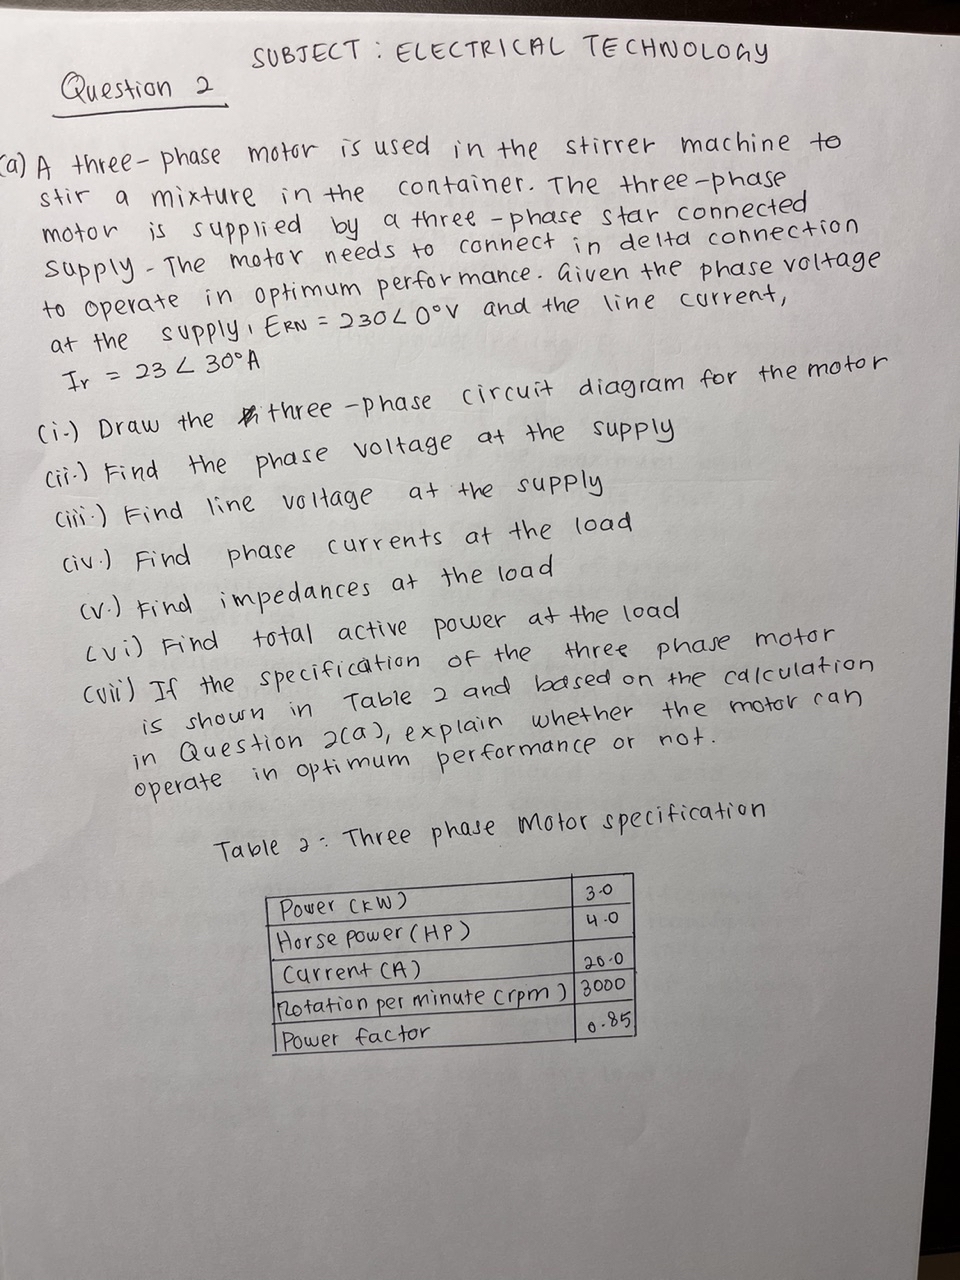 SUBJECT : ELECTRICAL TECHNOLOGY
Question 2
(a) A three-phase motor is used in the stirrer machine to
stir a mixture in the container. The three-phase
motor is supplied by a three-phase star connected
supply. The motor needs to connect in delta connection
to operate in optimum performance. Given the phase voltage
at the supply, ERN = 230∠0°V and the line current,
Ir = 23∠30°A
(i.) Draw the three-phase circuit diagram for the motor
(ii.) Find the phase voltage at the supply
(iii.) Find line voltage at the supply
(iv.) Find phase currents at the load
(v.) Find impedances at the load
(vi) Find total active power at the load
(vii) If the specification of the three phase motor
is shown in Table 2 and based on the calculation
in Question 2(a), explain whether the motor can
operate in optimum performance or not.
Table 2: Three phase Motor specification
Power (kW) 3.0
Horse power (HP) 4.0
Current (A) 20.0
Rotation per minute (rpm) 3000
Power factor 0.85